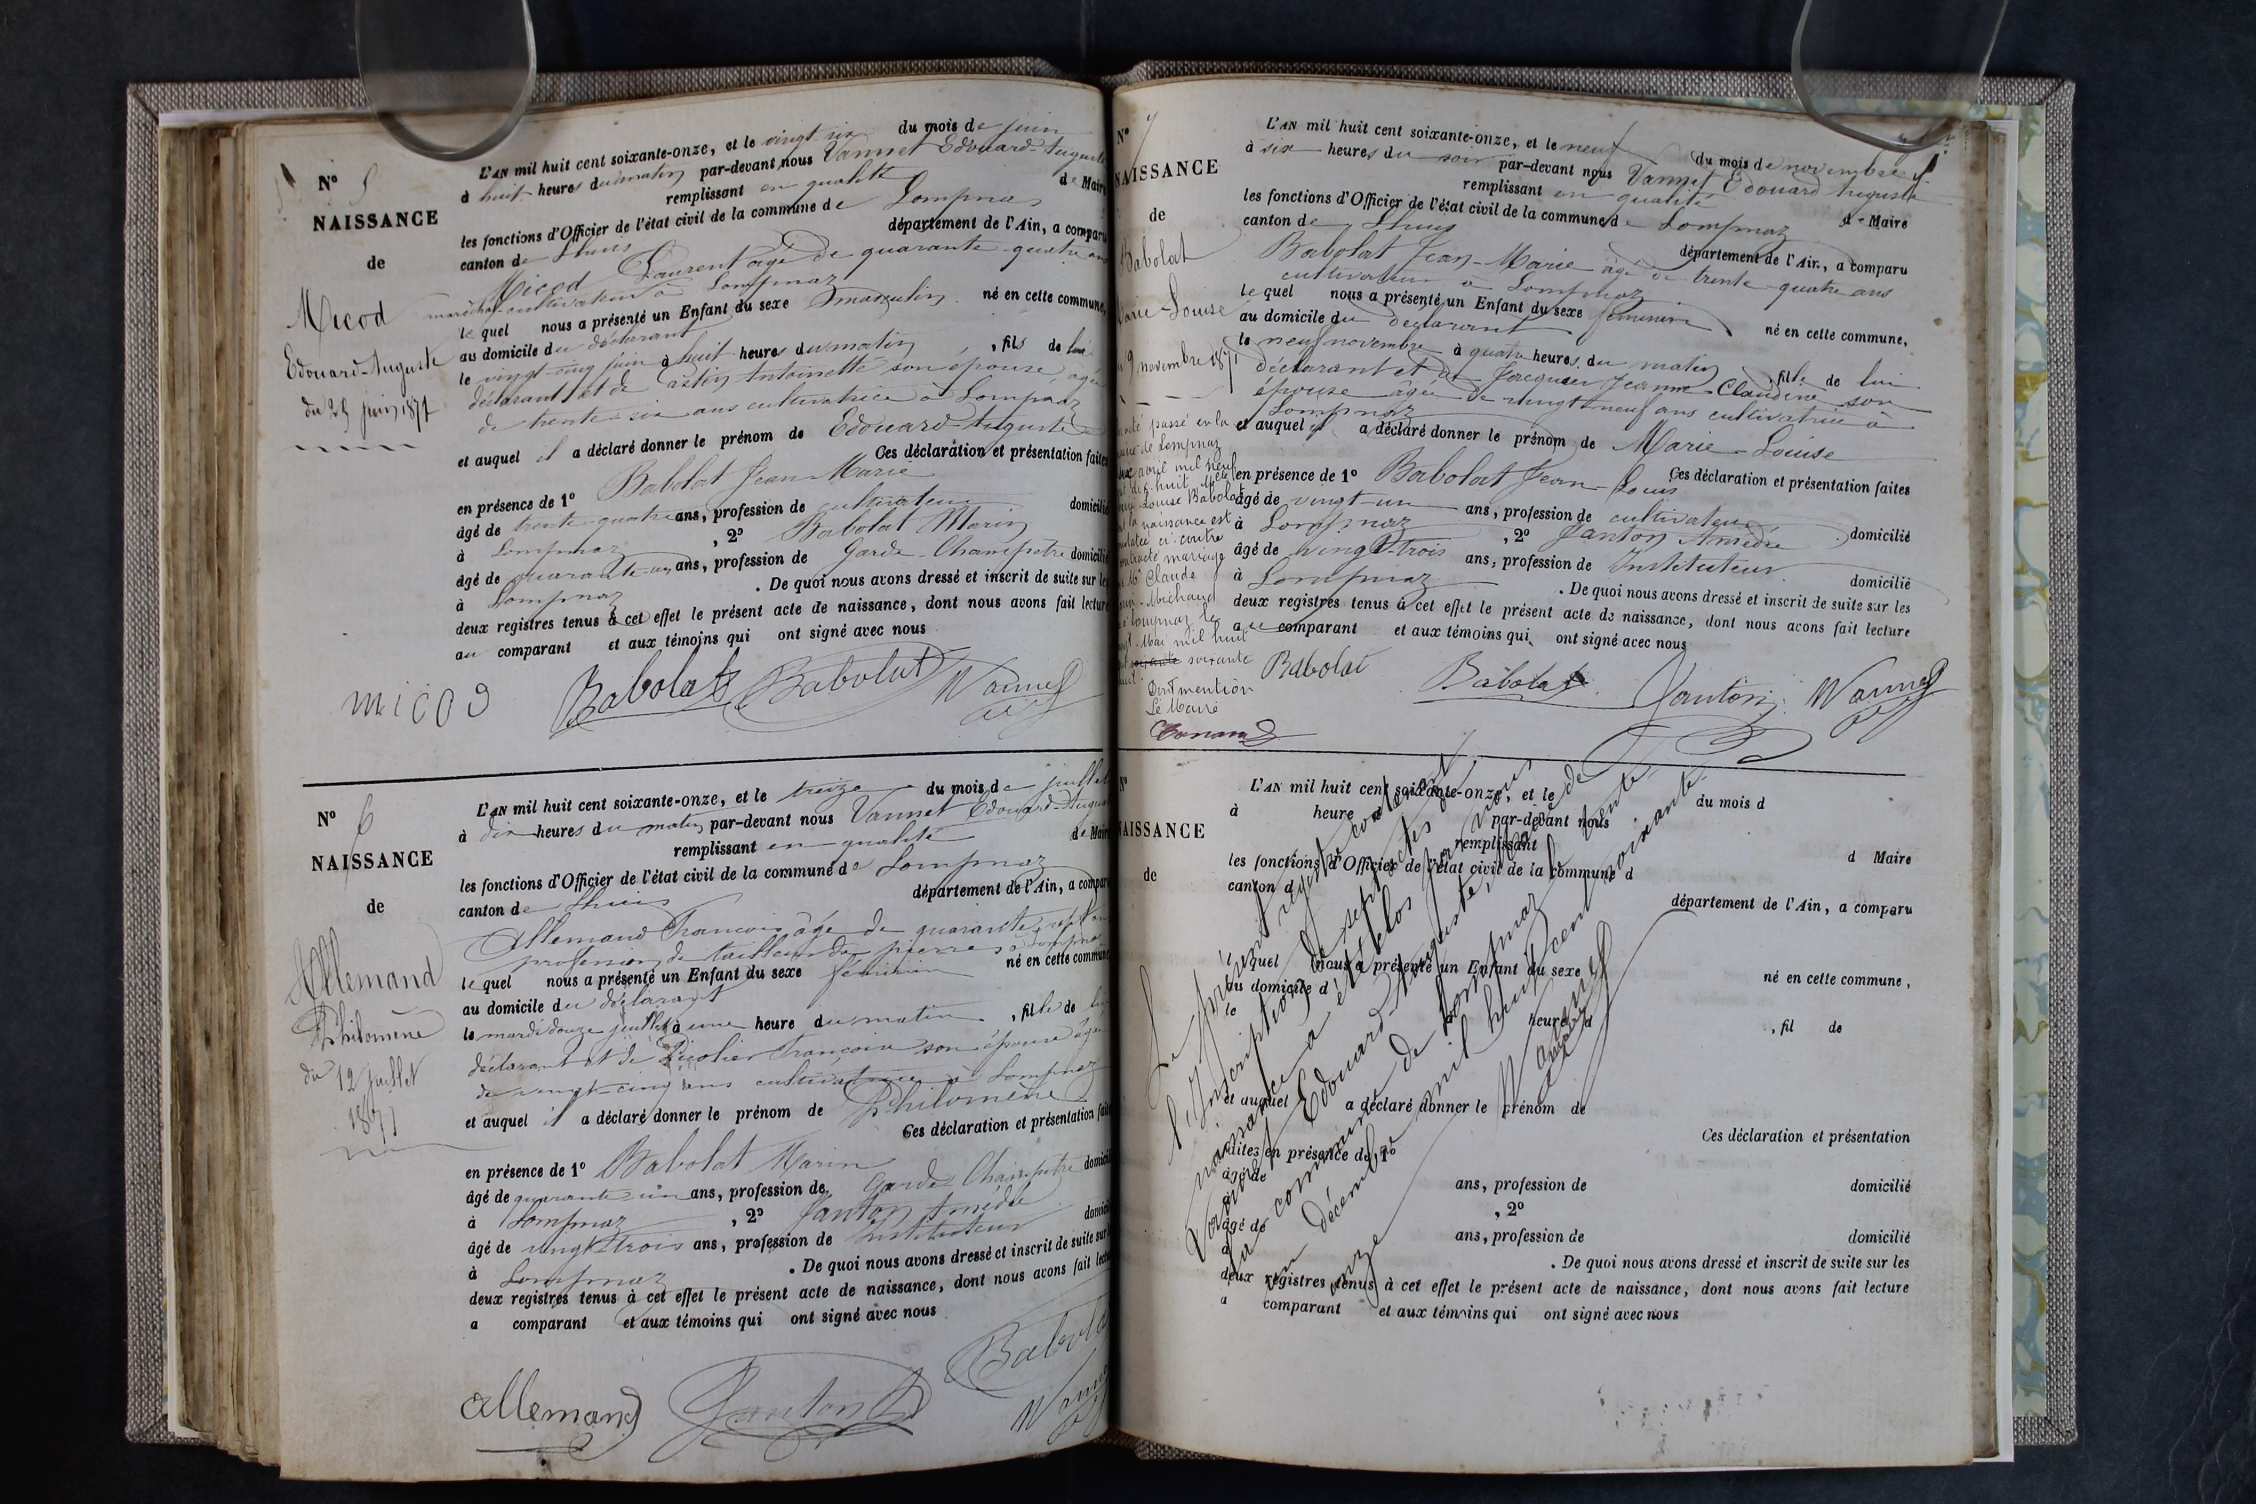 N° 5
NAISSANCE
de
Micod
Edouard-Auguste
du 25 juin 1871
L'AN mil huit cent soixante-onze, et le vingt six du mois de juin
à huit heures du matin par-devant nous Vannet Edouard-Auguste
remplissant en qualité de Maire
les fonctions d'Officier de l'état civil de la commune de Lompnaz
canton de Lhuis département de l'Ain, a comparu
Micod Laurent âgé de quarante-quatre ans
maréchal-cultivateur à Lompnaz
lequel nous a présenté un Enfant du sexe masculin né en cette commune,
au domicile du déclarant
le vingt-cinq juin à huit heures du matin, fils de lui
déclarant et de Antoinette son épouse, âgée
de trente-six ans cultivatrice à Lompnaz
et auquel il a déclaré donner le prénom de Edouard-Auguste
Ces déclaration et présentation faites
en présence de 1° Babolat Jean-Marie
âgé de trente-quatre ans, profession de cultivateur domicilié
à Lompnaz, 2° Babolat Marin
âgé de quarante un ans, profession de Garde-Champêtre domicilié
à Lompnaz. De quoi nous avons dressé et inscrit de suite sur les
deux registres tenus à cet effet le présent acte de naissance, dont nous avons fait lecture
au comparant et aux témoins qui ont signé avec nous
micod Babolat Babolat Vannet
N° 6
NAISSANCE
de
Allemand
Philomène
du 12 juillet
1871
L'AN mil huit cent soixante-onze, et le treize du mois de juillet
à dix heures du matin par-devant nous Vannet Edouard-Auguste
remplissant en qualité de Maire
les fonctions d'Officier de l'état civil de la commune de Lompnaz
canton de Lhuis département de l'Ain, a comparu
Allemand François âgé de quarante-sept ans
profession de tailleur de pierres à Lompnaz
lequel nous a présenté un Enfant du sexe féminin né en cette commune
au domicile du déclarant
le mardi douze juillet à une heure du matin, fille de lui
déclarant et de Françoise son épouse âgée
de vingt-cinq ans cultivatrice à Lompnaz
et auquel il a déclaré donner le prénom de Philomène
Ces déclaration et présentation faites
en présence de 1° Babolat Marin
âgé de quarante-un ans, profession de Garde-Champêtre domicilié
à Lompnaz, 2° Janton Amédée
âgé de vingt-trois ans, profession de Instituteur domicilié
à Lompnaz. De quoi nous avons dressé et inscrit de suite sur les
deux registres tenus à cet effet le présent acte de naissance, dont nous avons fait lecture
a comparant et aux témoins qui ont signé avec nous
allemand Janton Babolat
Vannet
N° 7
NAISSANCE
de
Babolat
Marie-Louise
du 9 novembre 1871
L'AN mil huit cent soixante-onze, et le neuf du mois de novembre
à six heures du soir par-devant nous Vannet Edouard Auguste
remplissant en qualité de Maire
les fonctions d'Officier de l'état civil de la commune de Lompnaz
canton de Lhuis département de l'Ain, a comparu
Babolat Jean-Marie âgé de trente-quatre ans
cultivateur à Lompnaz
lequel nous a présenté un Enfant du sexe féminin né en cette commune,
au domicile du déclarant
le neuf novembre à quatre heures du matin, fille de lui
déclarant et de Jacquier Jeanne-Claudine son
épouse âgée de vingt neuf ans cultivatrice à
Lompnaz
et auquel il a déclaré donner le prénom de Marie-Louise
Ces déclaration et présentation faites
en présence de 1° Babolat Jean-Louis
âgé de vingt-un ans, profession de cultivateur domicilié
à Lompnaz, 2° Janton Amédée
âgé de vingt-trois ans, profession de Instituteur domicilié
à Lompnaz. De quoi nous avons dressé et inscrit de suite sur les
deux registres tenus à cet effet le présent acte de naissance, dont nous avons fait lecture
au comparant et aux témoins qui ont signé avec nous
passé en la
de Lompnaz
avril mil neuf
dix huit
Louise Babolat
la naissance est
ci-contre
mariage
Claude
Michaud
Lompnaz le
Mai mil huit
soixante
Dont mention
Le Maire
Babolat Babolat Janton Vannet
NAISSANCE
de
L'AN mil huit cent soixante-onze, et le du mois d
à heure par-devant nous
remplissant d Maire
les fonctions d'Officier de l'état civil de la commune d
canton d département de l'Ain, a comparu
lequel nous a présenté un Enfant du sexe né en cette commune,
au domicile d
le à heure d, fil de
et auquel a déclaré donner le prénom de
Ces déclaration et présentation
faites en présence de 1°
âgé de ans, profession de domicilié
à, 2°
âgé de ans, profession de domicilié
à. De quoi nous avons dressé et inscrit de suite sur les
deux registres tenus à cet effet le présent acte de naissance, dont nous avons fait lecture
a comparant et aux témoins qui ont signé avec nous
Le présent registre contenant
l'inscription de sept actes de
naissance a été clos par nous
Vannet Edouard-Auguste, maire de
la commune de Lompnaz le trente
un décembre mil huit cent soixante
onze
Vannet